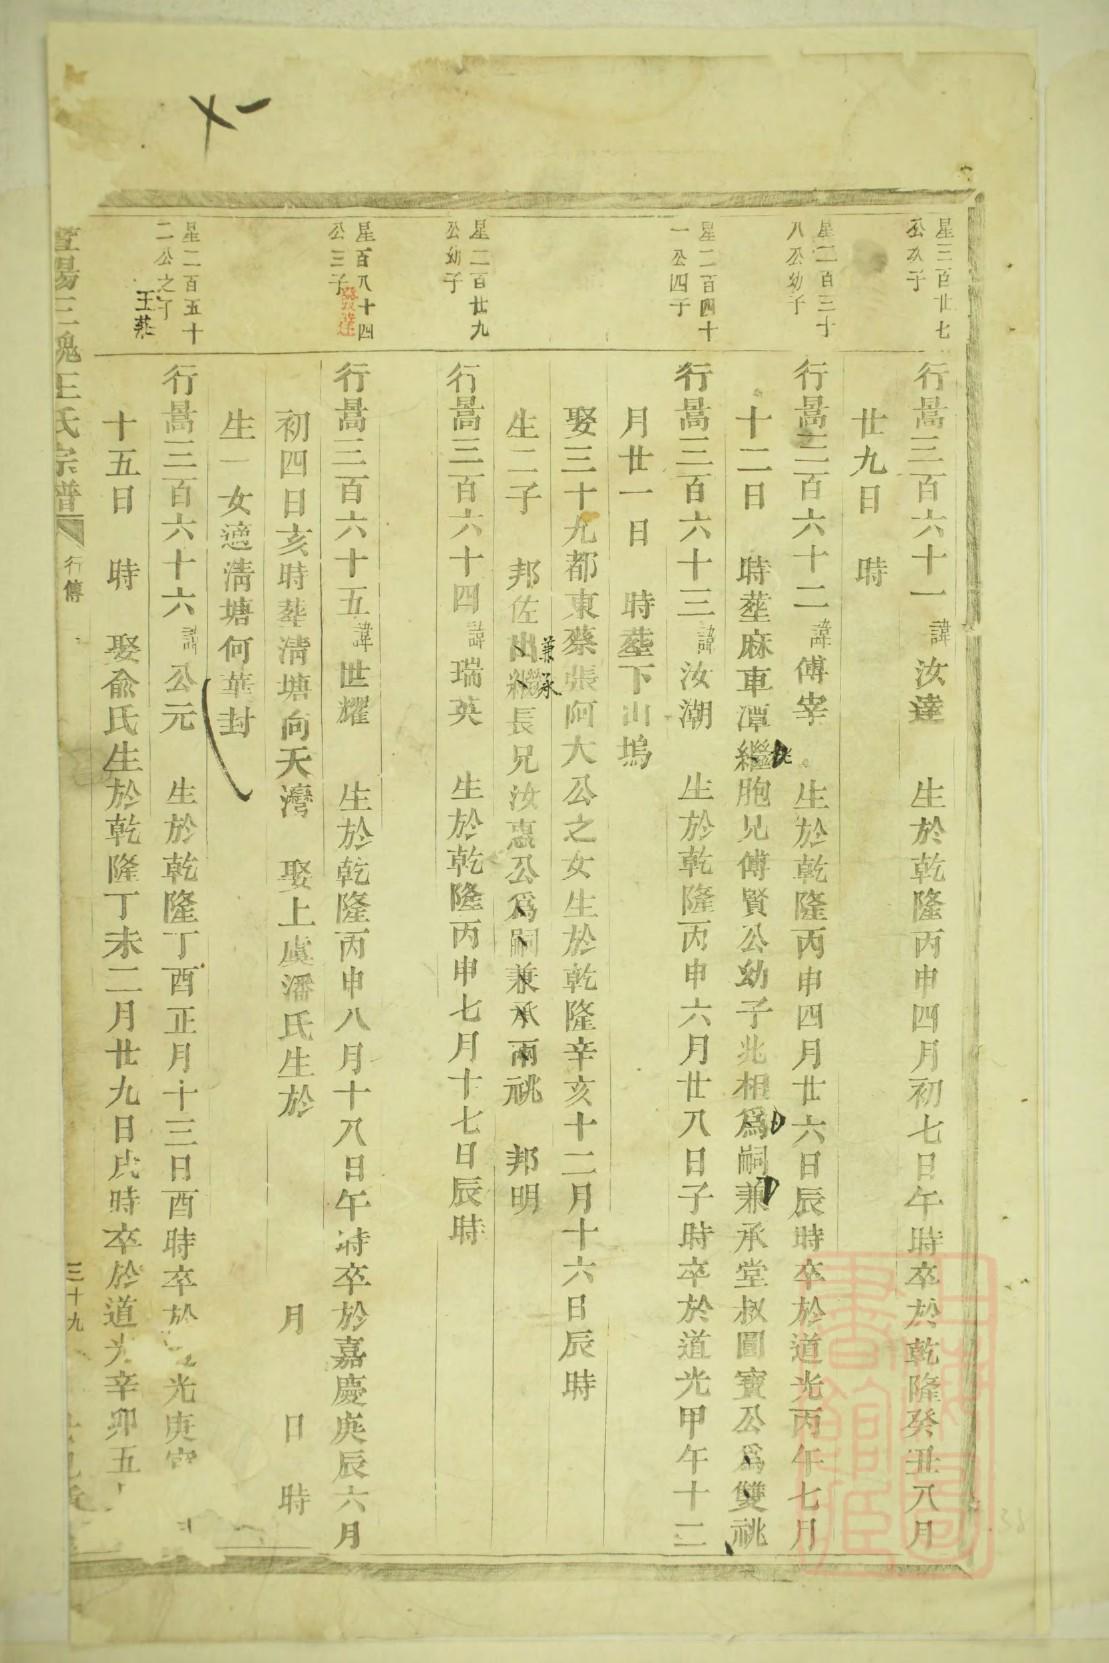 一
星三百廿七
公次子
行暠三百六十一 諱汝達 生於乾隆丙申四月初七日午時卒於乾隆癸丑八月
廿九日 時
星二百三十
八公幼子
行暠三百六十二 諱傅宰 生於乾隆丙申四月廿六日辰時卒於道光丙午七月
十二日 時塟麻車潭繼胞兄傅賢公幼子兆相爲嗣兼承堂叔圓寶公爲雙祧
星二百四十
一公四子
行暠三百六十三 諱汝湖 生於乾隆丙申六月廿八日子時卒於道光甲午十二
月廿一日 時塟下山塢
娶三十九都東蔡張阿大公之女生於乾隆辛亥十二月十六日辰時
生二子 邦佐出繼長兄汝惠公爲嗣兼承兩祧 邦明
兼承
星二百廿九
公幼子
行暠三百六十四 諱瑞英 生於乾隆丙申七月十七日辰時
星百八十四
公三子
發達
行暠三百六十五 諱世耀 生於乾隆丙申八月十八日午時卒於嘉慶庚辰六月
初四日亥時塟清塘向天灣 娶上虞潘氏生於 月 日 時
生一女適清塘何華封
星二百五十
二公之子
行暠三百六十六 諱公元 生於乾隆丁酉正月十三日酉時卒於 光庚寅
十五日 時 娶俞氏生於乾隆丁未二月廿九日戌時卒於道光辛卯五
暨陽三槐王氏宗譜 行傳 三十九